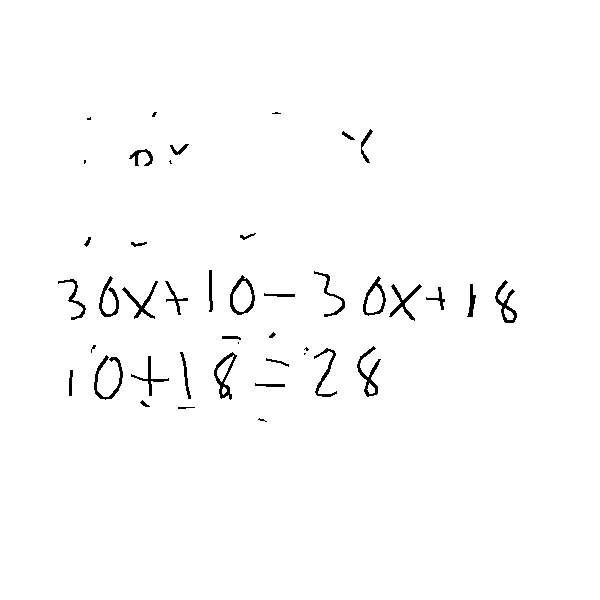 30x+10-30x+18
10+18=28